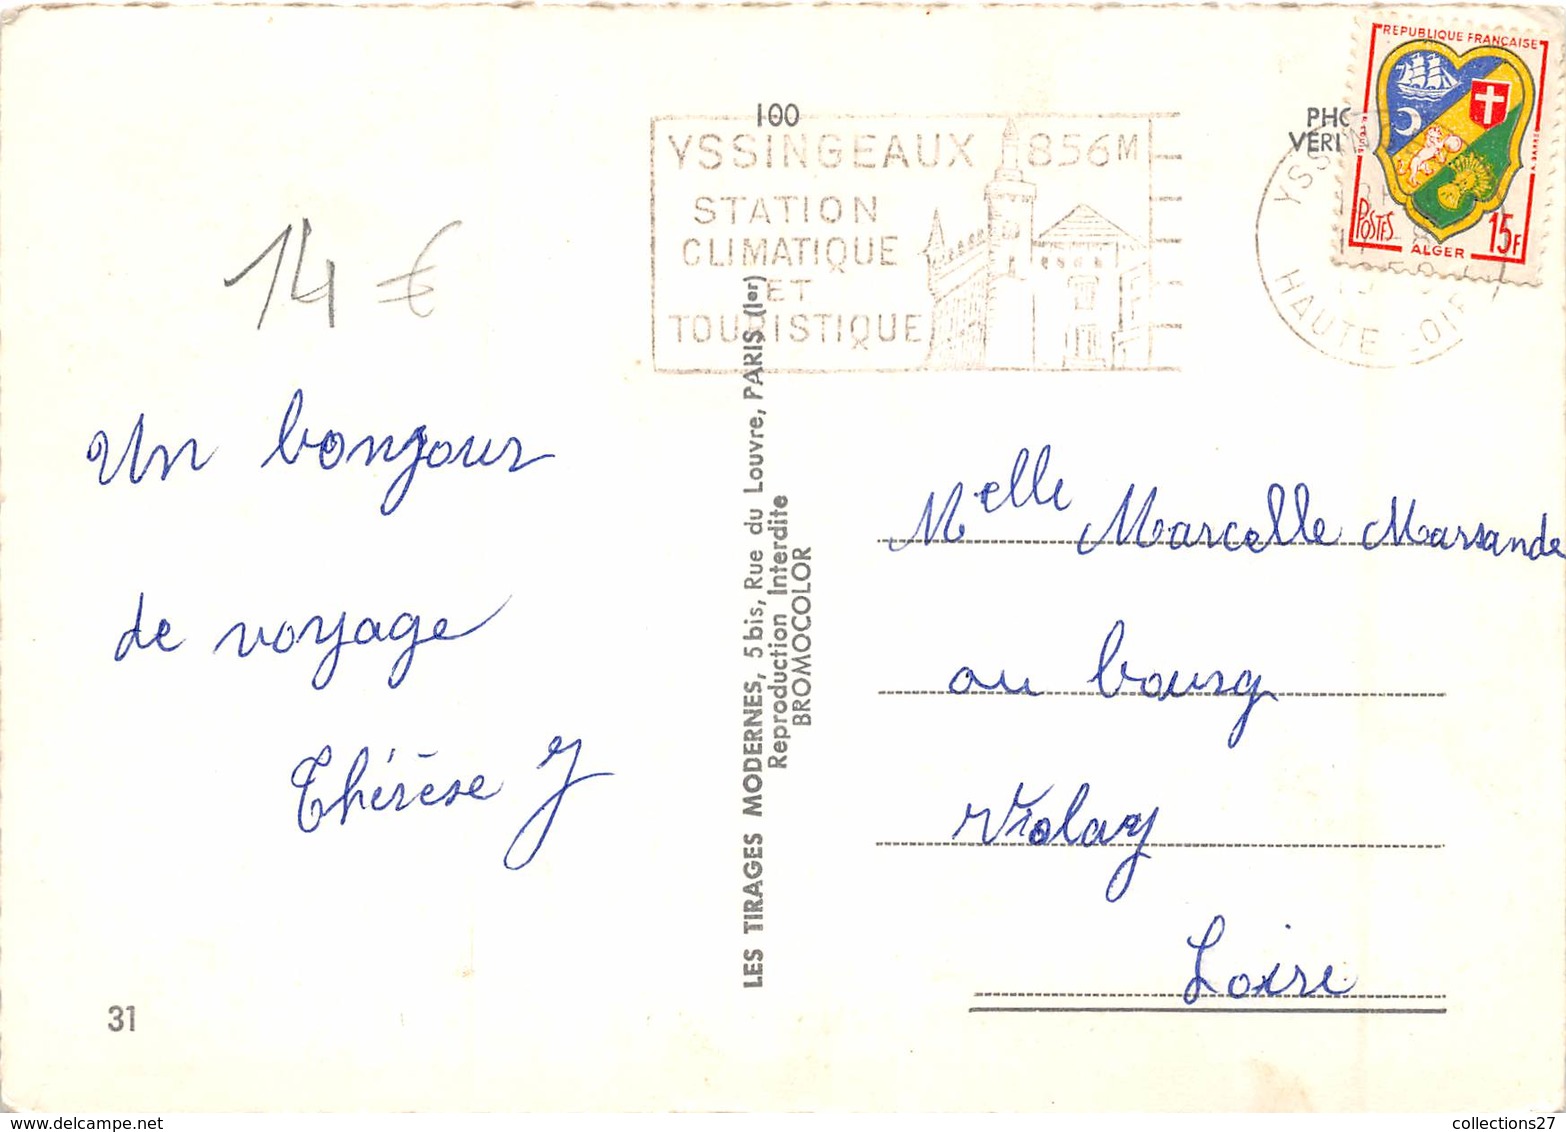 100
YSSINGEAUX 856M
STATION
CLIMATIQUE
ET
TOURISTIQUE
REPUBLIQUE FRANÇAISE
POSTES
15F
ALGER
HAUTE LOIRE
14 €
Un bonjour
de voyage
Thérèse J
31
LES TIRAGES MODERNES, 5 bis, Rue du Louvre, PARIS (1er)
Reproduction Interdite
BROMOCOLOR
Melle Marcelle Marsande
au bourg
Violay
Loire
collections27